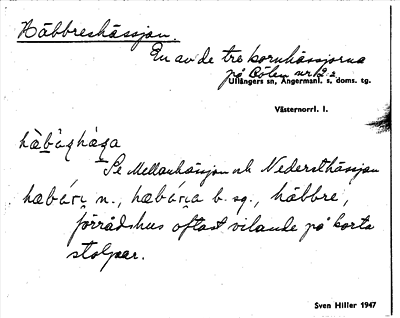 Häbbreshässjan.
En av de tre kornhässjorna
på Bölen nr 2
Ullångers sn, Ångermanl. s. doms. tg.
Västernorrl. l.
Se Mellanhässjan och Nedersthässjan
n., b. sg., häbbre,
förrådshus oftast vilande på korta
stolpar.
Sven Hiller 1947